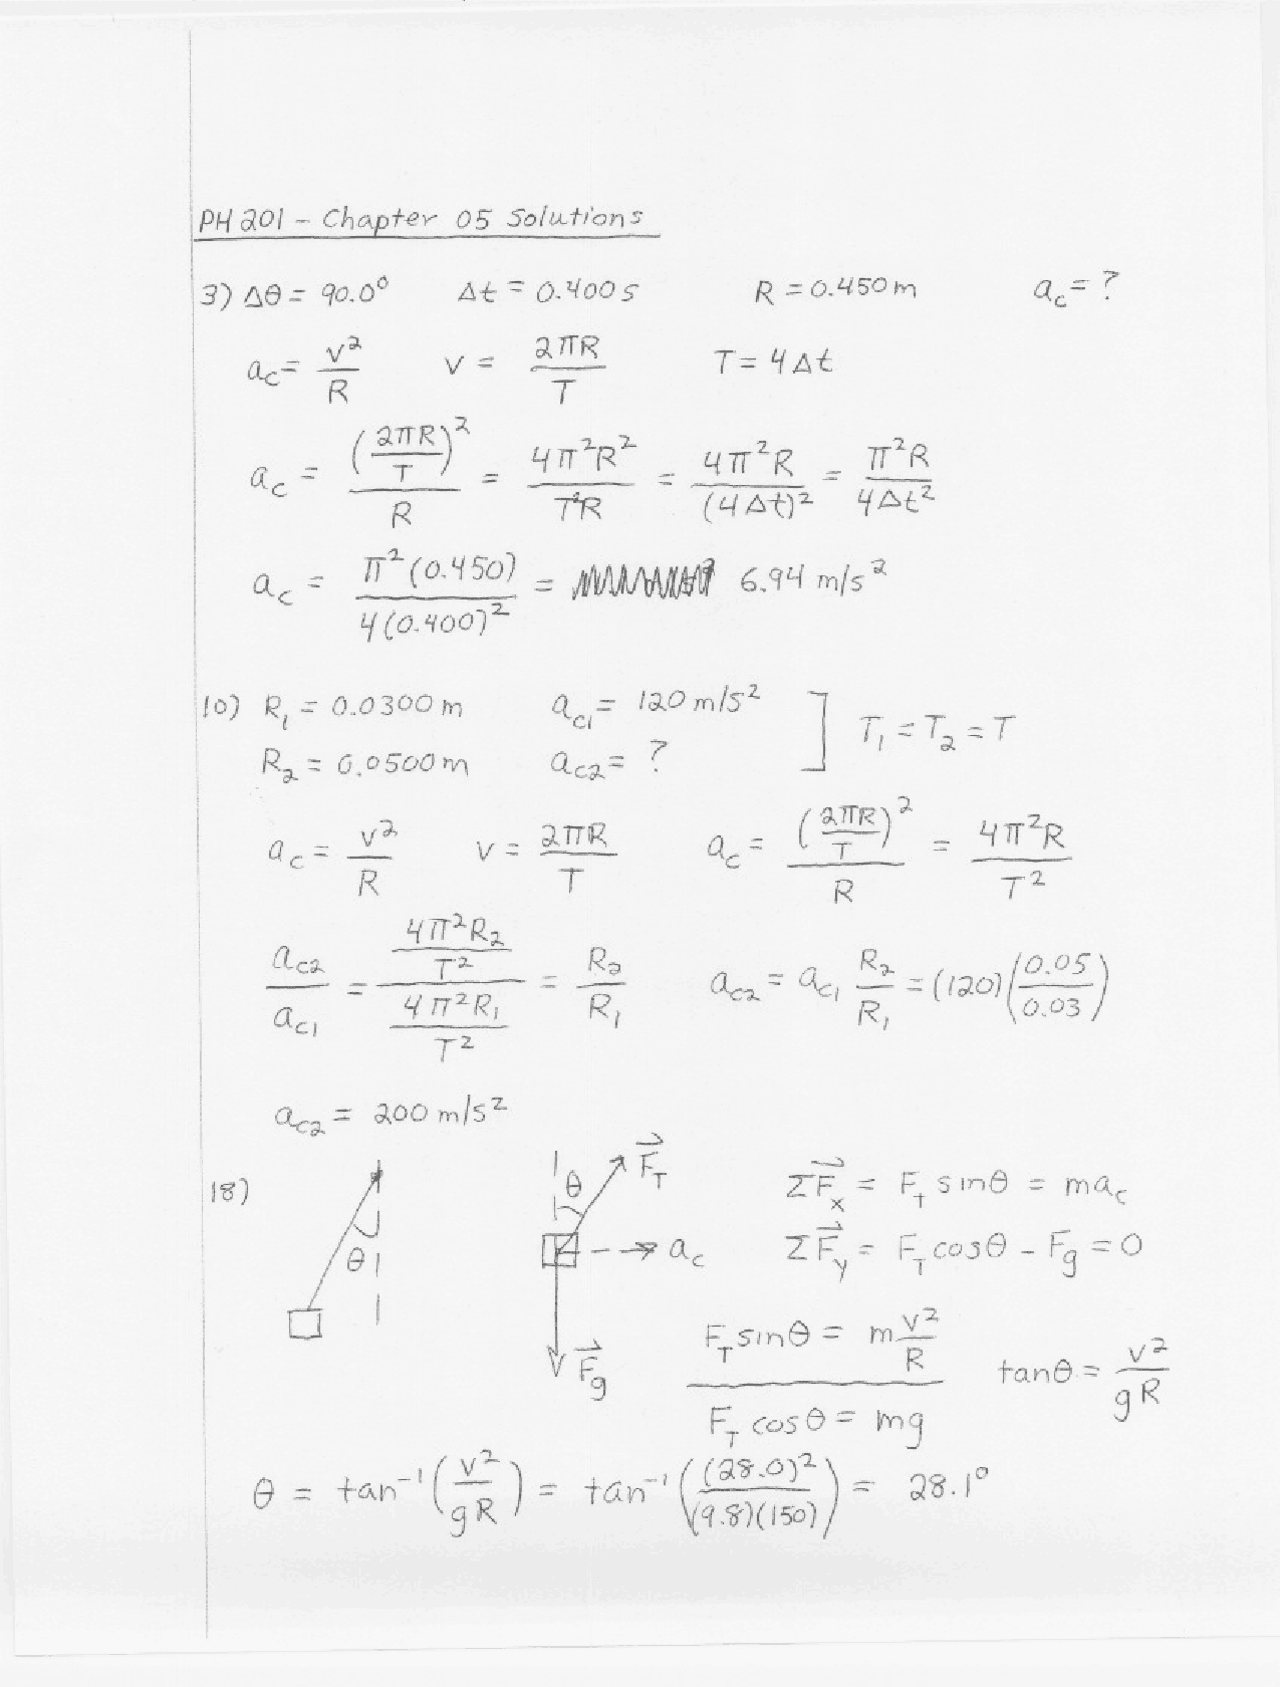 PH 201 - Chapter 05 Solutions
3) Δθ = 90.0° Δt = 0.400 s R = 0.450 m a_c = ?
a_c = v²/R v = 2πR/T T = 4Δt
a_c = (2πR/T)²/R = 4π²R²/T²R = 4π²R/(4Δt)² = π²R/4Δt²
a_c = π²(0.450)/4(0.400)² = 6.94 m/s²
10) R₁ = 0.0300 m a_c1 = 120 m/s² ] T₁ = T₂ = T
R₂ = 0.0500 m a_c2 = ?
a_c = v²/R v = 2πR/T a_c = (2πR/T)²/R = 4π²R/T²
a_c2/a_c1 = (4π²R₂/T²)/(4π²R₁/T²) = R₂/R₁ a_c2 = a_c1 R₂/R₁ = (120)(0.05/0.03)
a_c2 = 200 m/s²
18) θ θ F⃗_T a_c F⃗_g
ΣF⃗_x = F_T sinθ = ma_c
ΣF⃗_y = F_T cosθ - F_g = 0
F_T sinθ = m v²/R
F_T cosθ = mg
tanθ = v²/gR
θ = tan⁻¹(v²/gR) = tan⁻¹((28.0)²/(9.8)(150)) = 28.1°